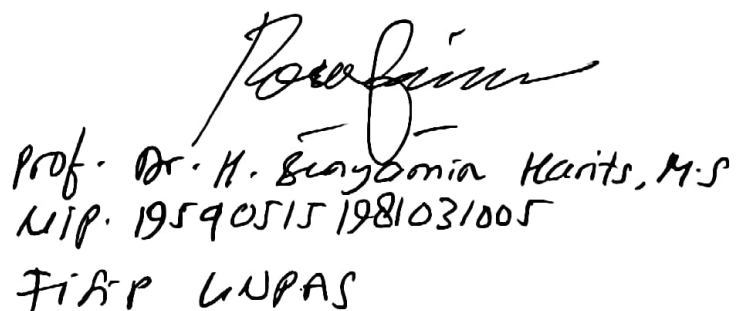 Prof. Dr. H. Benyamin Harits, M.S
NIP. 195905151981031005
Fisip UNPAS